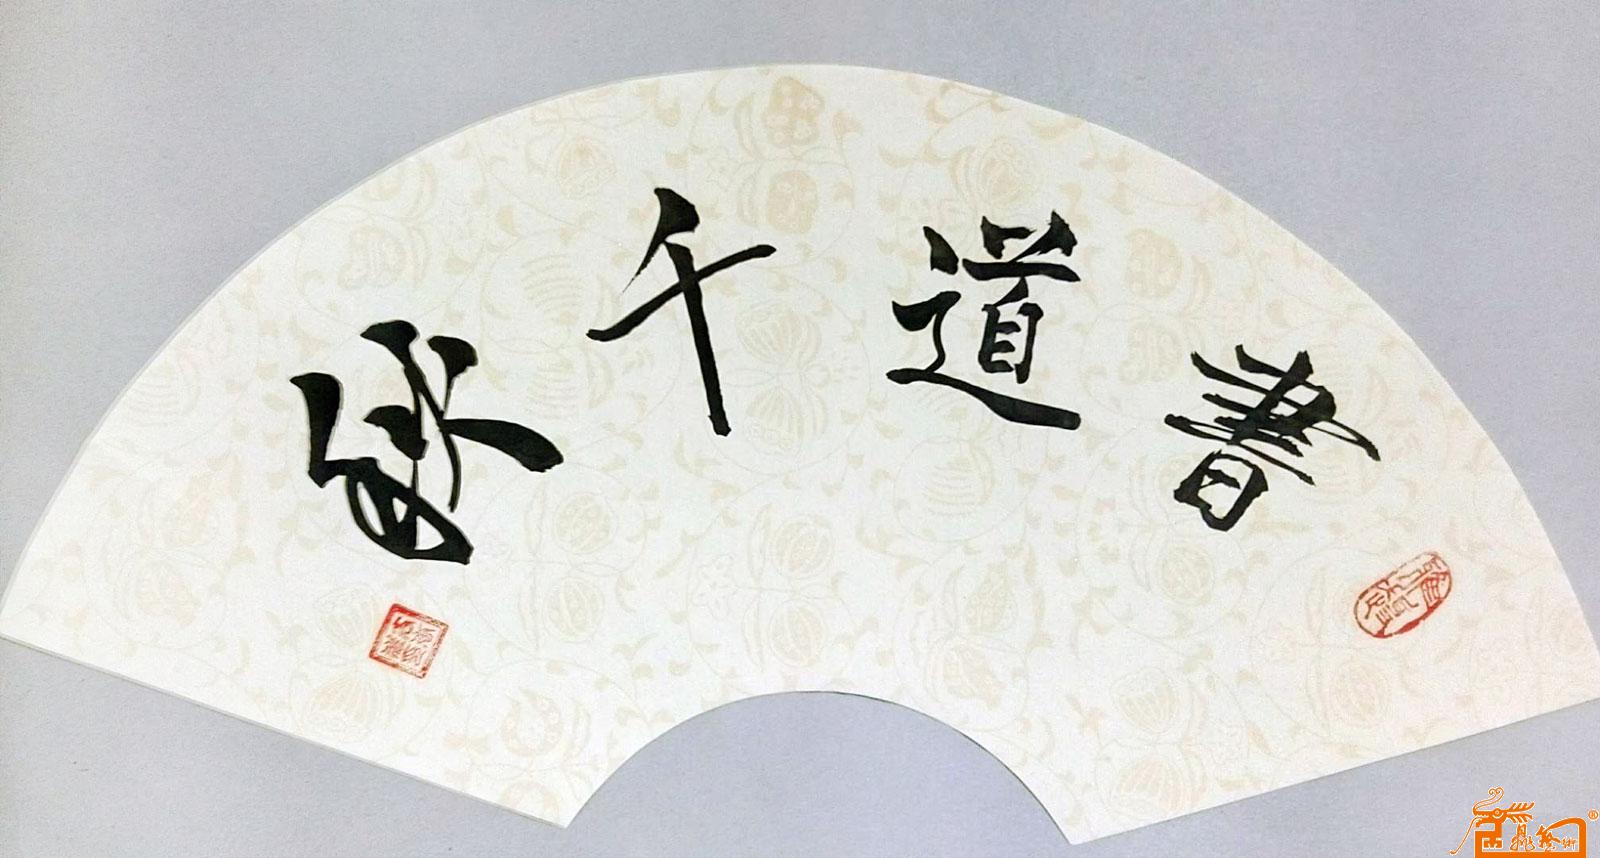 書道千秋